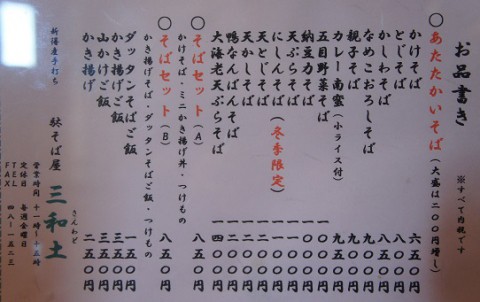 お品書き ※すべて内税です
○あたたかいそば(大盛は二〇〇円増し)
かけそば 六五〇円
とじそば
かしわそば
なめこおろしそば
親子そば
カレー南蛮(小ライス付) 九五〇円
五目野菜そば
納豆力そば
天ぷらそば
にしんそば(冬季限定)
天かしそば
天とじそば
鴨なんばんそば
大海老天ぷらそば 一四〇〇円
○そばセット(A) 八五〇円
かけそば・ミニかき揚げ丼・つけもの
○そばセット(B) 八五〇円
かき揚げそば・ダッタンそばご飯・つけもの
ダッタンそばご飯 一五〇円
かき揚げご飯 三五〇円
山かけご飯 三五〇円
かき揚げ 二五〇円
新得産手打ち
駅そば屋 三和土
さんわど
営業時間 十一時〜十五時
定休日 毎週金曜日
TEL
FAX 四八ー一五二三